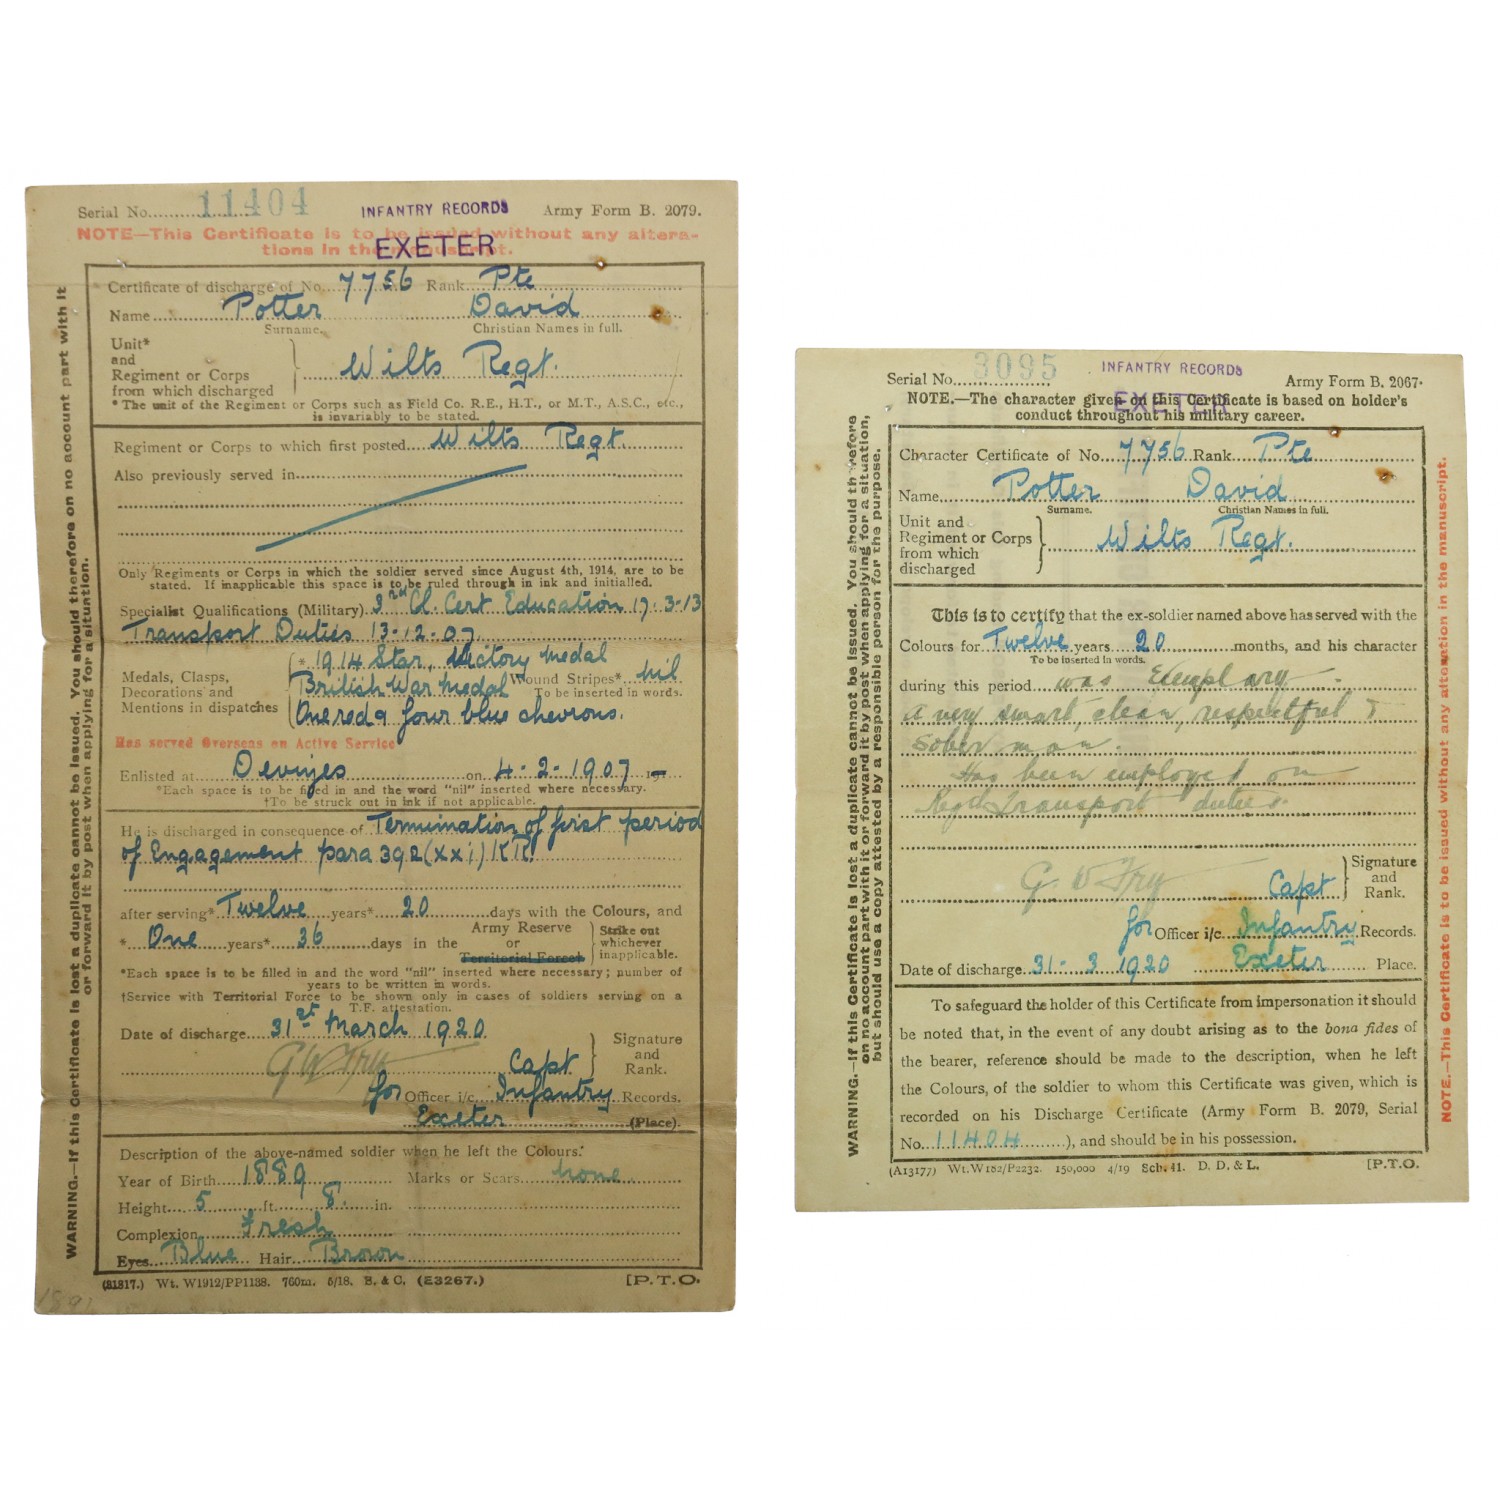 Serial No. 11404 INFANTRY RECORDS Army Form B. 2079.
NOTE—This Certificate is to be issued without any altera-
tions in the manuscript.
EXETER
Certificate of discharge of No. 7756 Rank Pte
Name Potter David
Surname. Christian Names in full.
Unit*
and
Regiment or Corps
from which discharged
Wilts Regt.
*The unit of the Regiment or Corps such as Field Co. R.E., H.T., or M.T., A.S.C., etc.,
is invariably to be stated.
Regiment or Corps to which first posted Wilts Regt.
Also previously served in
Only Regiments or Corps in which the soldier served since August 4th, 1914, are to be
stated. If inapplicable this space is to be ruled through in ink and initialled.
Specialist Qualifications (Military) 3rd Cl. Cert Education 17-3-13
Transport Duties 13-12-07
Medals, Clasps,
Decorations and
Mentions in dispatches
* 1914 Star, Victory Medal
British War Medal Wound Stripes* Nil
To be inserted in words.
One red & four blue chevrons.
Has served Overseas on Active Service
Enlisted at Devizes on 4-2-1907
*Each space is to be filled in and the word "nil" inserted where necessary.
†To be struck out in ink if not applicable.
He is discharged in consequence of Termination of first period
of Engagement para 392 (xxi) KR
after serving* Twelve years* 20 days with the Colours, and
* One years* 36 days in the Army Reserve
or
Territorial Force†
Strike out
whichever
inapplicable.
*Each space is to be filled in and the word "nil" inserted where necessary; number of
years to be written in words.
†Service with Territorial Force to be shown only in cases of soldiers serving on a
T.F. attestation.
Date of discharge 31st March 1920
G W Fry Capt
Signature
and
Rank.
for Officer i/c Infantry Records.
Exeter (Place).
Description of the above-named soldier when he left the Colours.
Year of Birth 1889 Marks or Scars none.
Height 5 ft. 8 in.
Complexion Fresh
Eyes Blue Hair Brown
(31817.) Wt. W1912/PP1138. 760m. 5/18. B. & C. (E3267.) [P.T.O.
WARNING.—If this Certificate is lost a duplicate cannot be issued. You should therefore on no account part with it
or forward it by post when applying for a situation.
Serial No. 3095 INFANTRY RECORDS Army Form B. 2067.
EXETER
NOTE.—The character given on this Certificate is based on holder's
conduct throughout his military career.
Character Certificate of No. 7756 Rank Pte
Name Potter David
Surname. Christian Names in full.
Unit and
Regiment or Corps
from which
discharged
Wilts Regt.
This is to certify that the ex-soldier named above has served with the
Colours for Twelve years 20 months, and his character
To be inserted in words.
during this period was Exemplary.
A very smart, clean, respectful &
sober man.
Has been employed on
Regtl Transport duties.
G. W Fry Capt
Signature
and
Rank.
for Officer i/c Infantry Records.
Date of discharge 31-3 1920 Exeter Place.
To safeguard the holder of this Certificate from impersonation it should
be noted that, in the event of any doubt arising as to the bona fides of
the bearer, reference should be made to the description, when he left
the Colours, of the soldier to whom this Certificate was given, which is
recorded on his Discharge Certificate (Army Form B. 2079, Serial
No. 11404), and should be in his possession.
(A13177) Wt.W182/P2232. 150,000 4/19 Sch. 41. D. D. & L. [P.T.O.
WARNING.—If this Certificate is lost a duplicate cannot be issued. You should therefore
on no account part with it or forward it by post when applying for a situation,
but should use a copy attested by a responsible person for the purpose.
NOTE.—This Certificate is to be issued without any alteration in the manuscript.